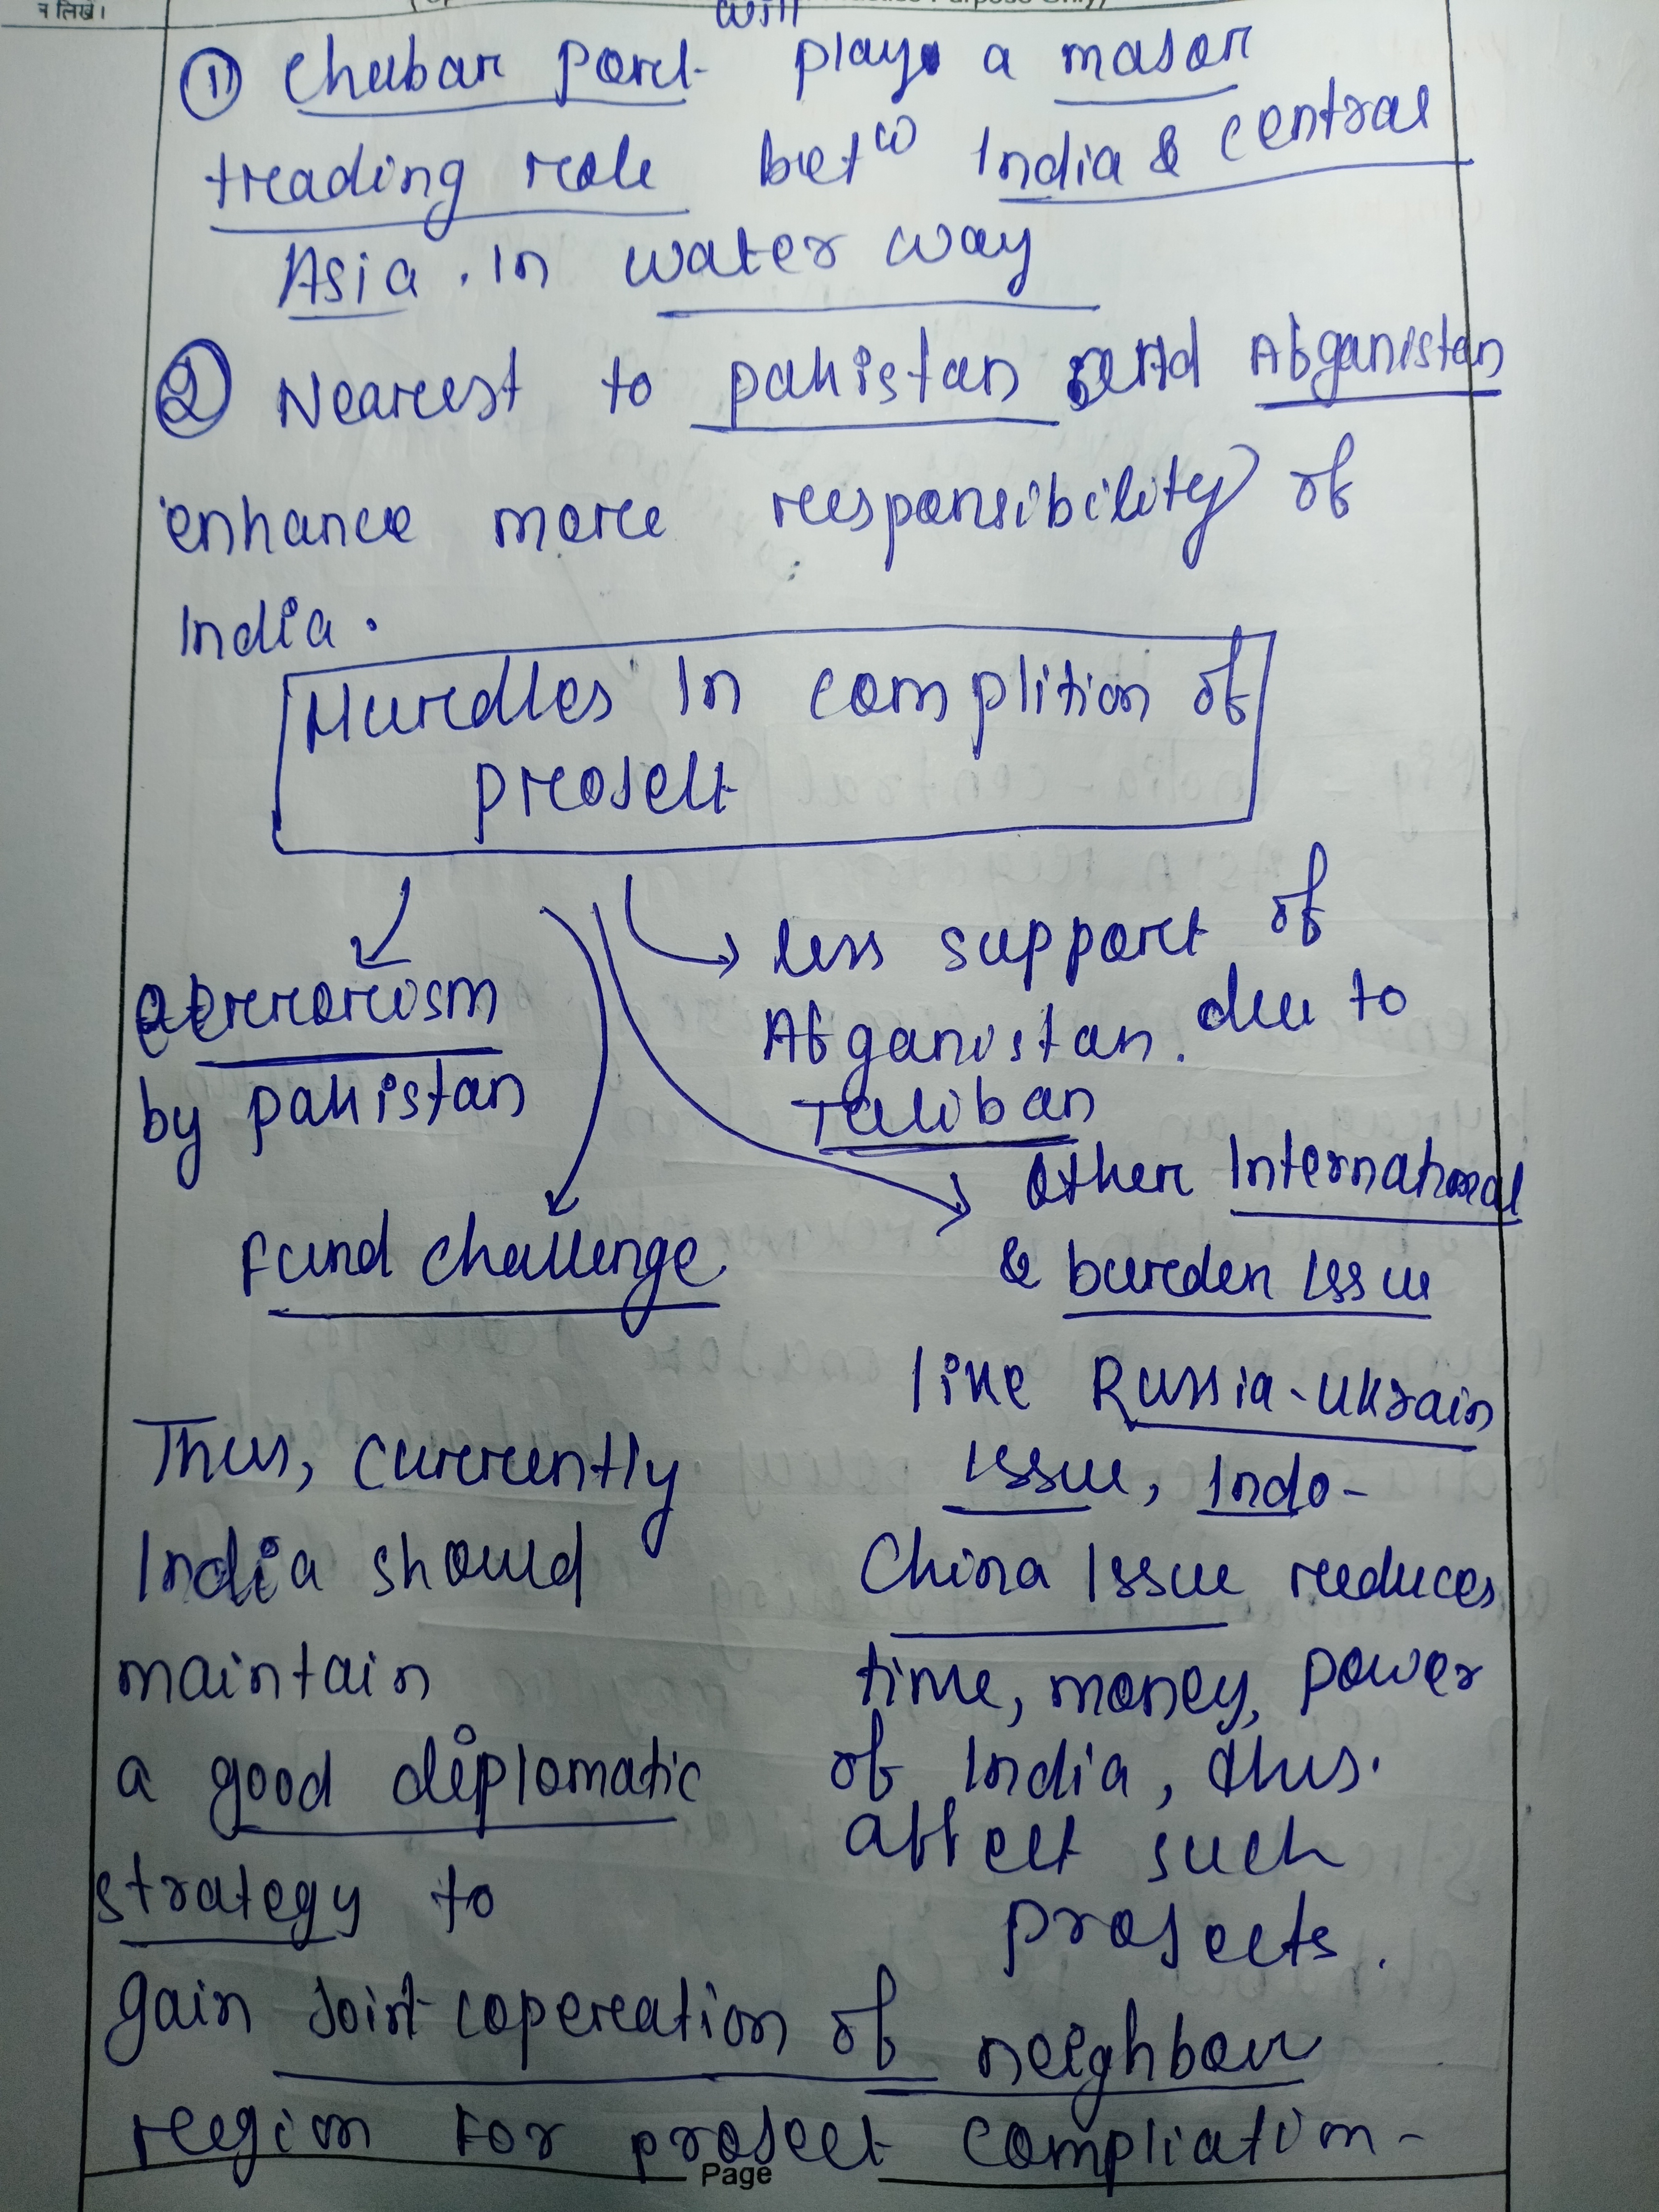 न लिखें।
will
① Chabar port plays a major
trading role betⁿ India & Central
Asia. In water way
② Nearest to pakistan and Afganistan
enhance more responsibility of
India.
Hurdles In complition of
project
terrorism
by pakistan
less support of
Afganistan. due to
Taliban
fund challenge
Other International
& burden Issue
like Russia-Ukrain
Issue, Indo-
China Issue reduces
time, money, power
of India, thus.
affect such
projects.
Thus, currently
India should
maintain
a good diplomatic
strategy to
gain joint coperation of neighbour
region For project compliation-
Page